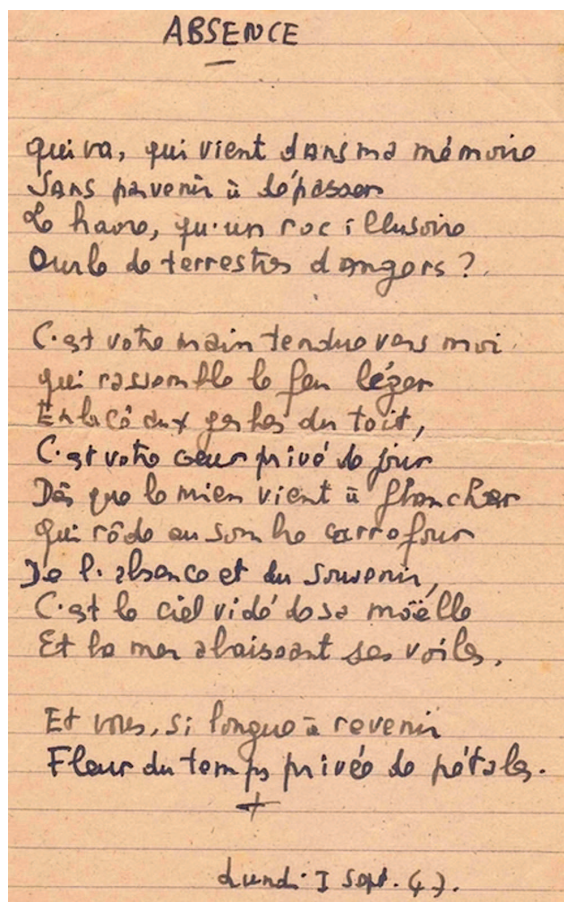 ABSENCE
qui va, qui vient dans ma mémoire
Sans parvenir à dépasser
Le havre, qu'un roc illusoire
Ourle de terrestres dangers ?
C'est votre main tendue vers moi
qui rassemble le feu léger
Enlacé aux gestes du toit,
C'est votre cœur privé de jour
Dès que le mien vient à flancher
qui rôde au sombre carrefour
De l'absence et du souvenir,
C'est le ciel vidé de sa moëlle
Et la mer abaissant ses voiles,
Et vous, si longue à revenir
Fleur du temps privée de pétales.
+
Lundi I Sept. 47.